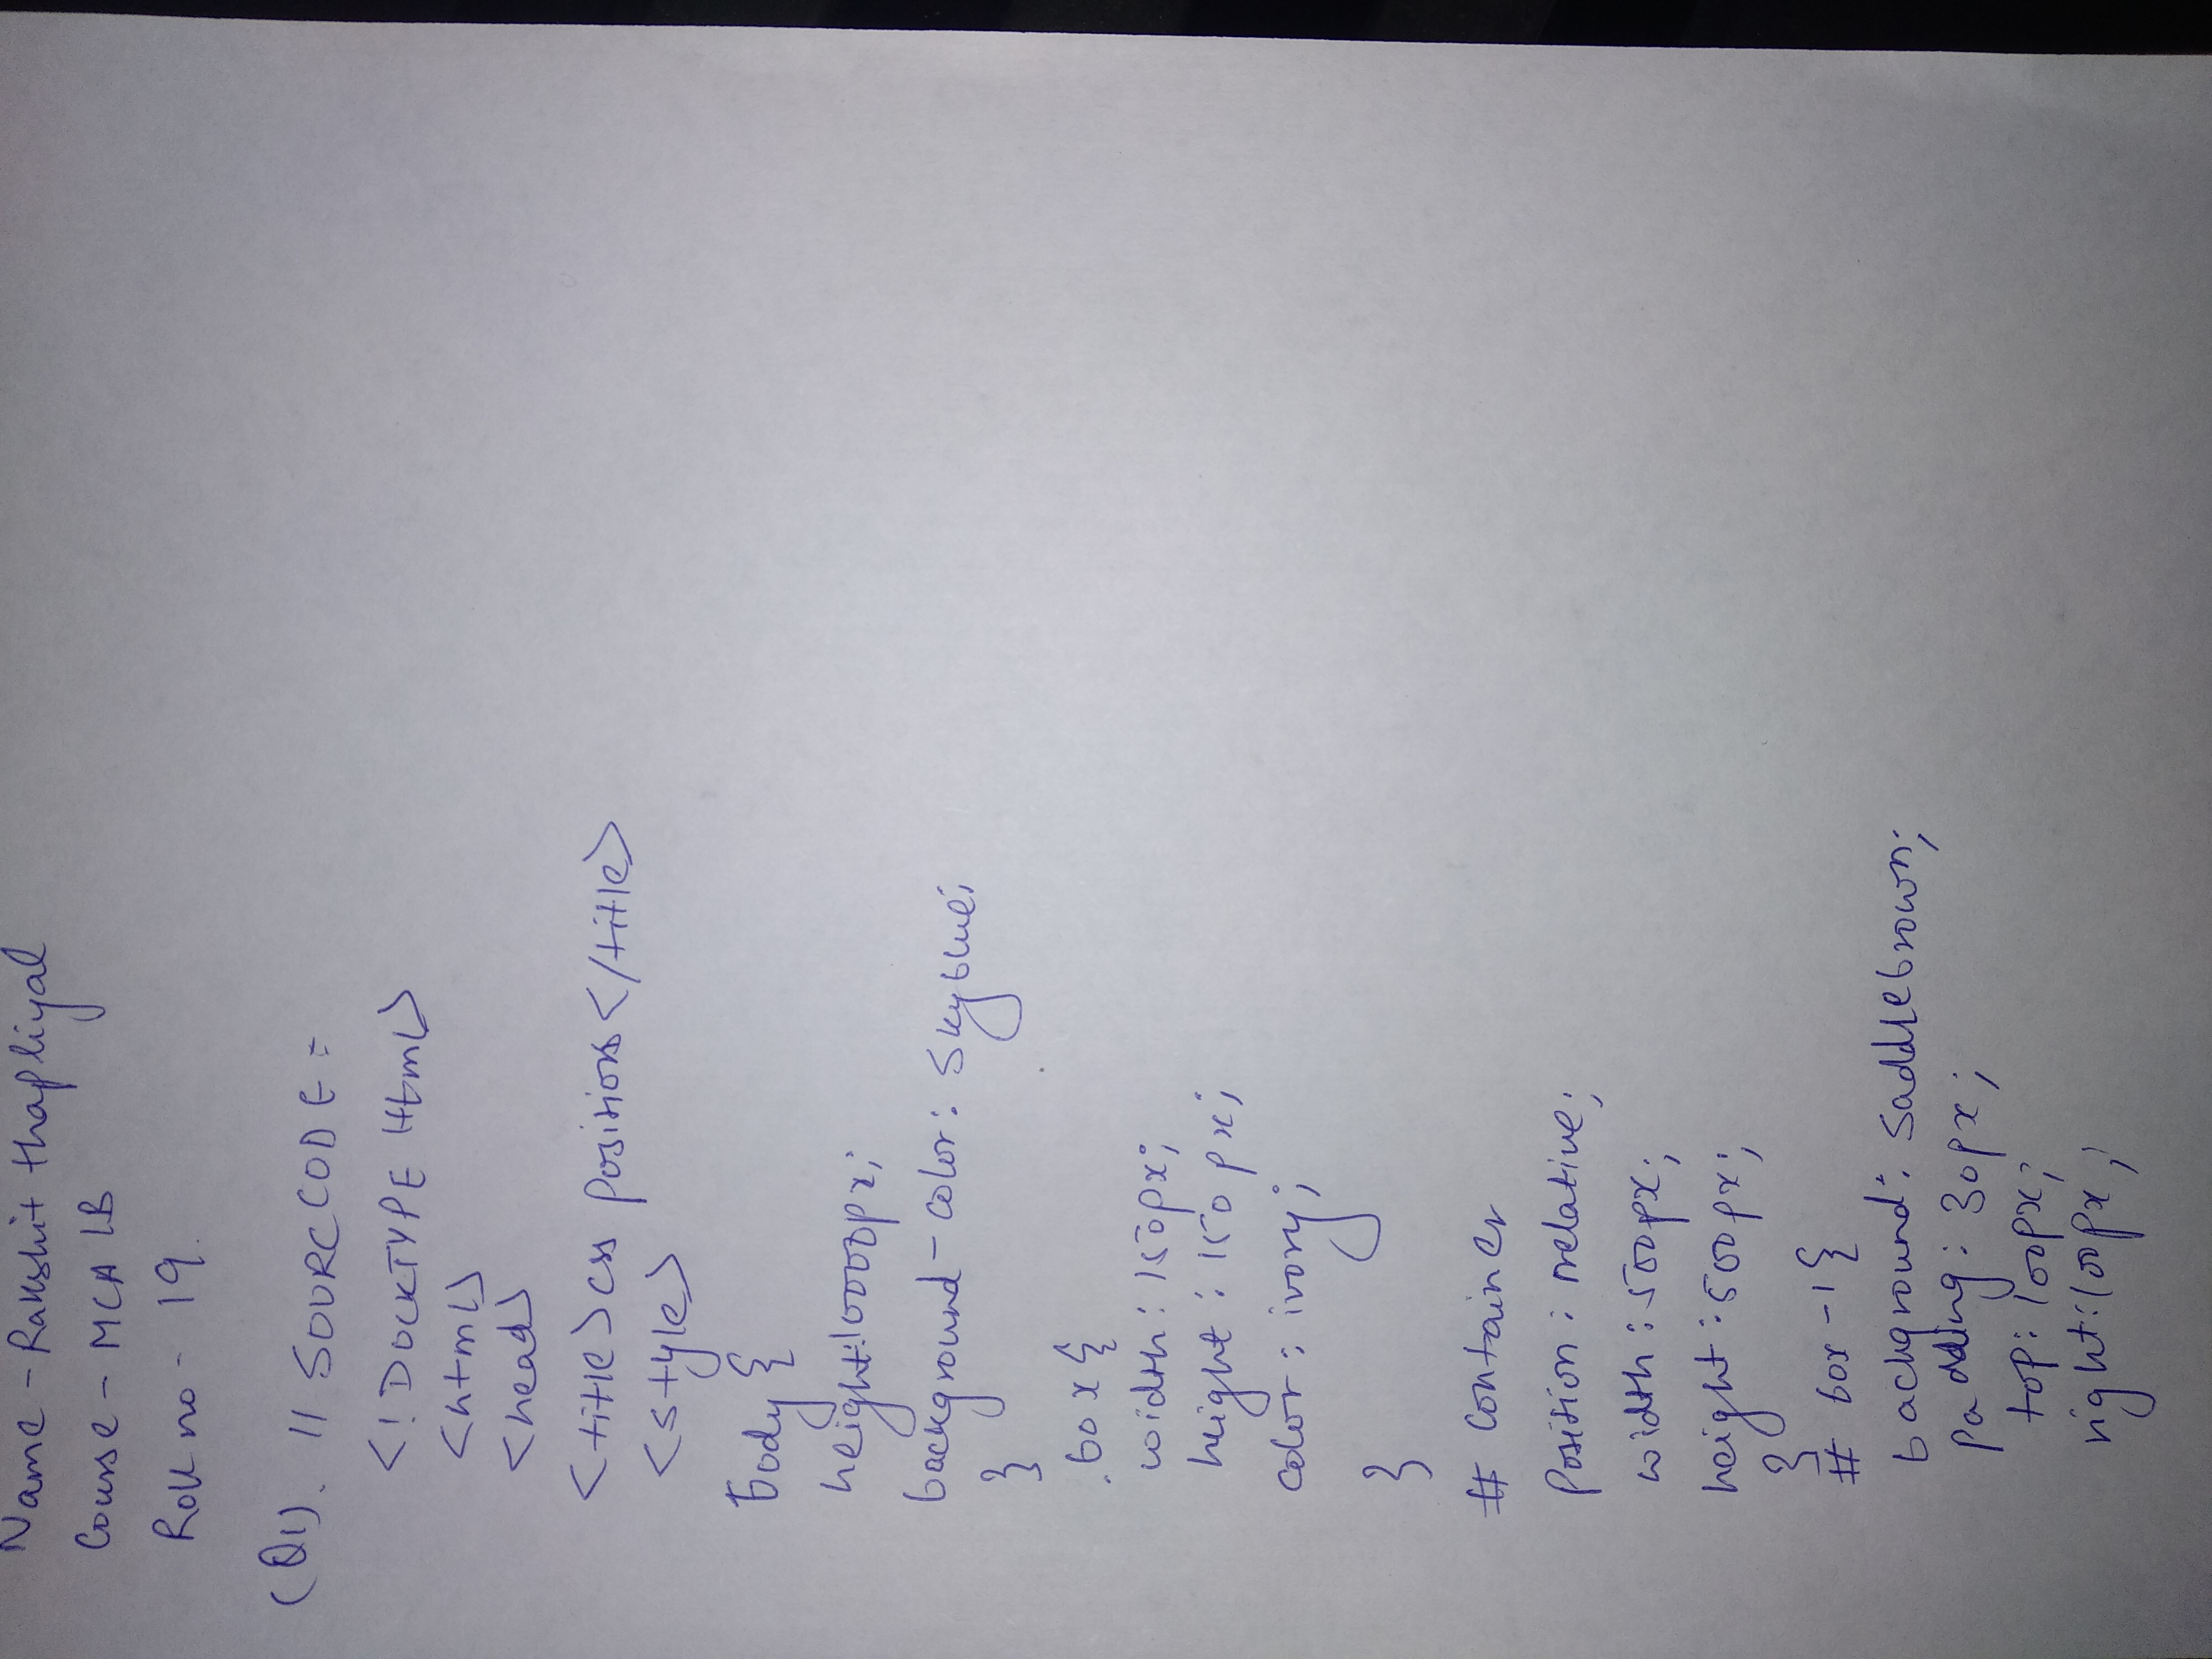 Name - Rakshit thapliyal
Course - MCA 1B
Roll no - 19.
(Q1). // SOURCECODE =
<!DOCKTYPE Html>
<html>
<head>
<title>css Positions</title>
<style>
body {
height:10000px;
background-color: skyblue;
}
.box{
width: 150px;
hight: 150px;
color: ivory;
}
# container
Position: relative;
width: 500px;
height: 500px;
}
# box-1{
background: saddlebrown;
padding: 30px;
top: 100px;
right: 100px;